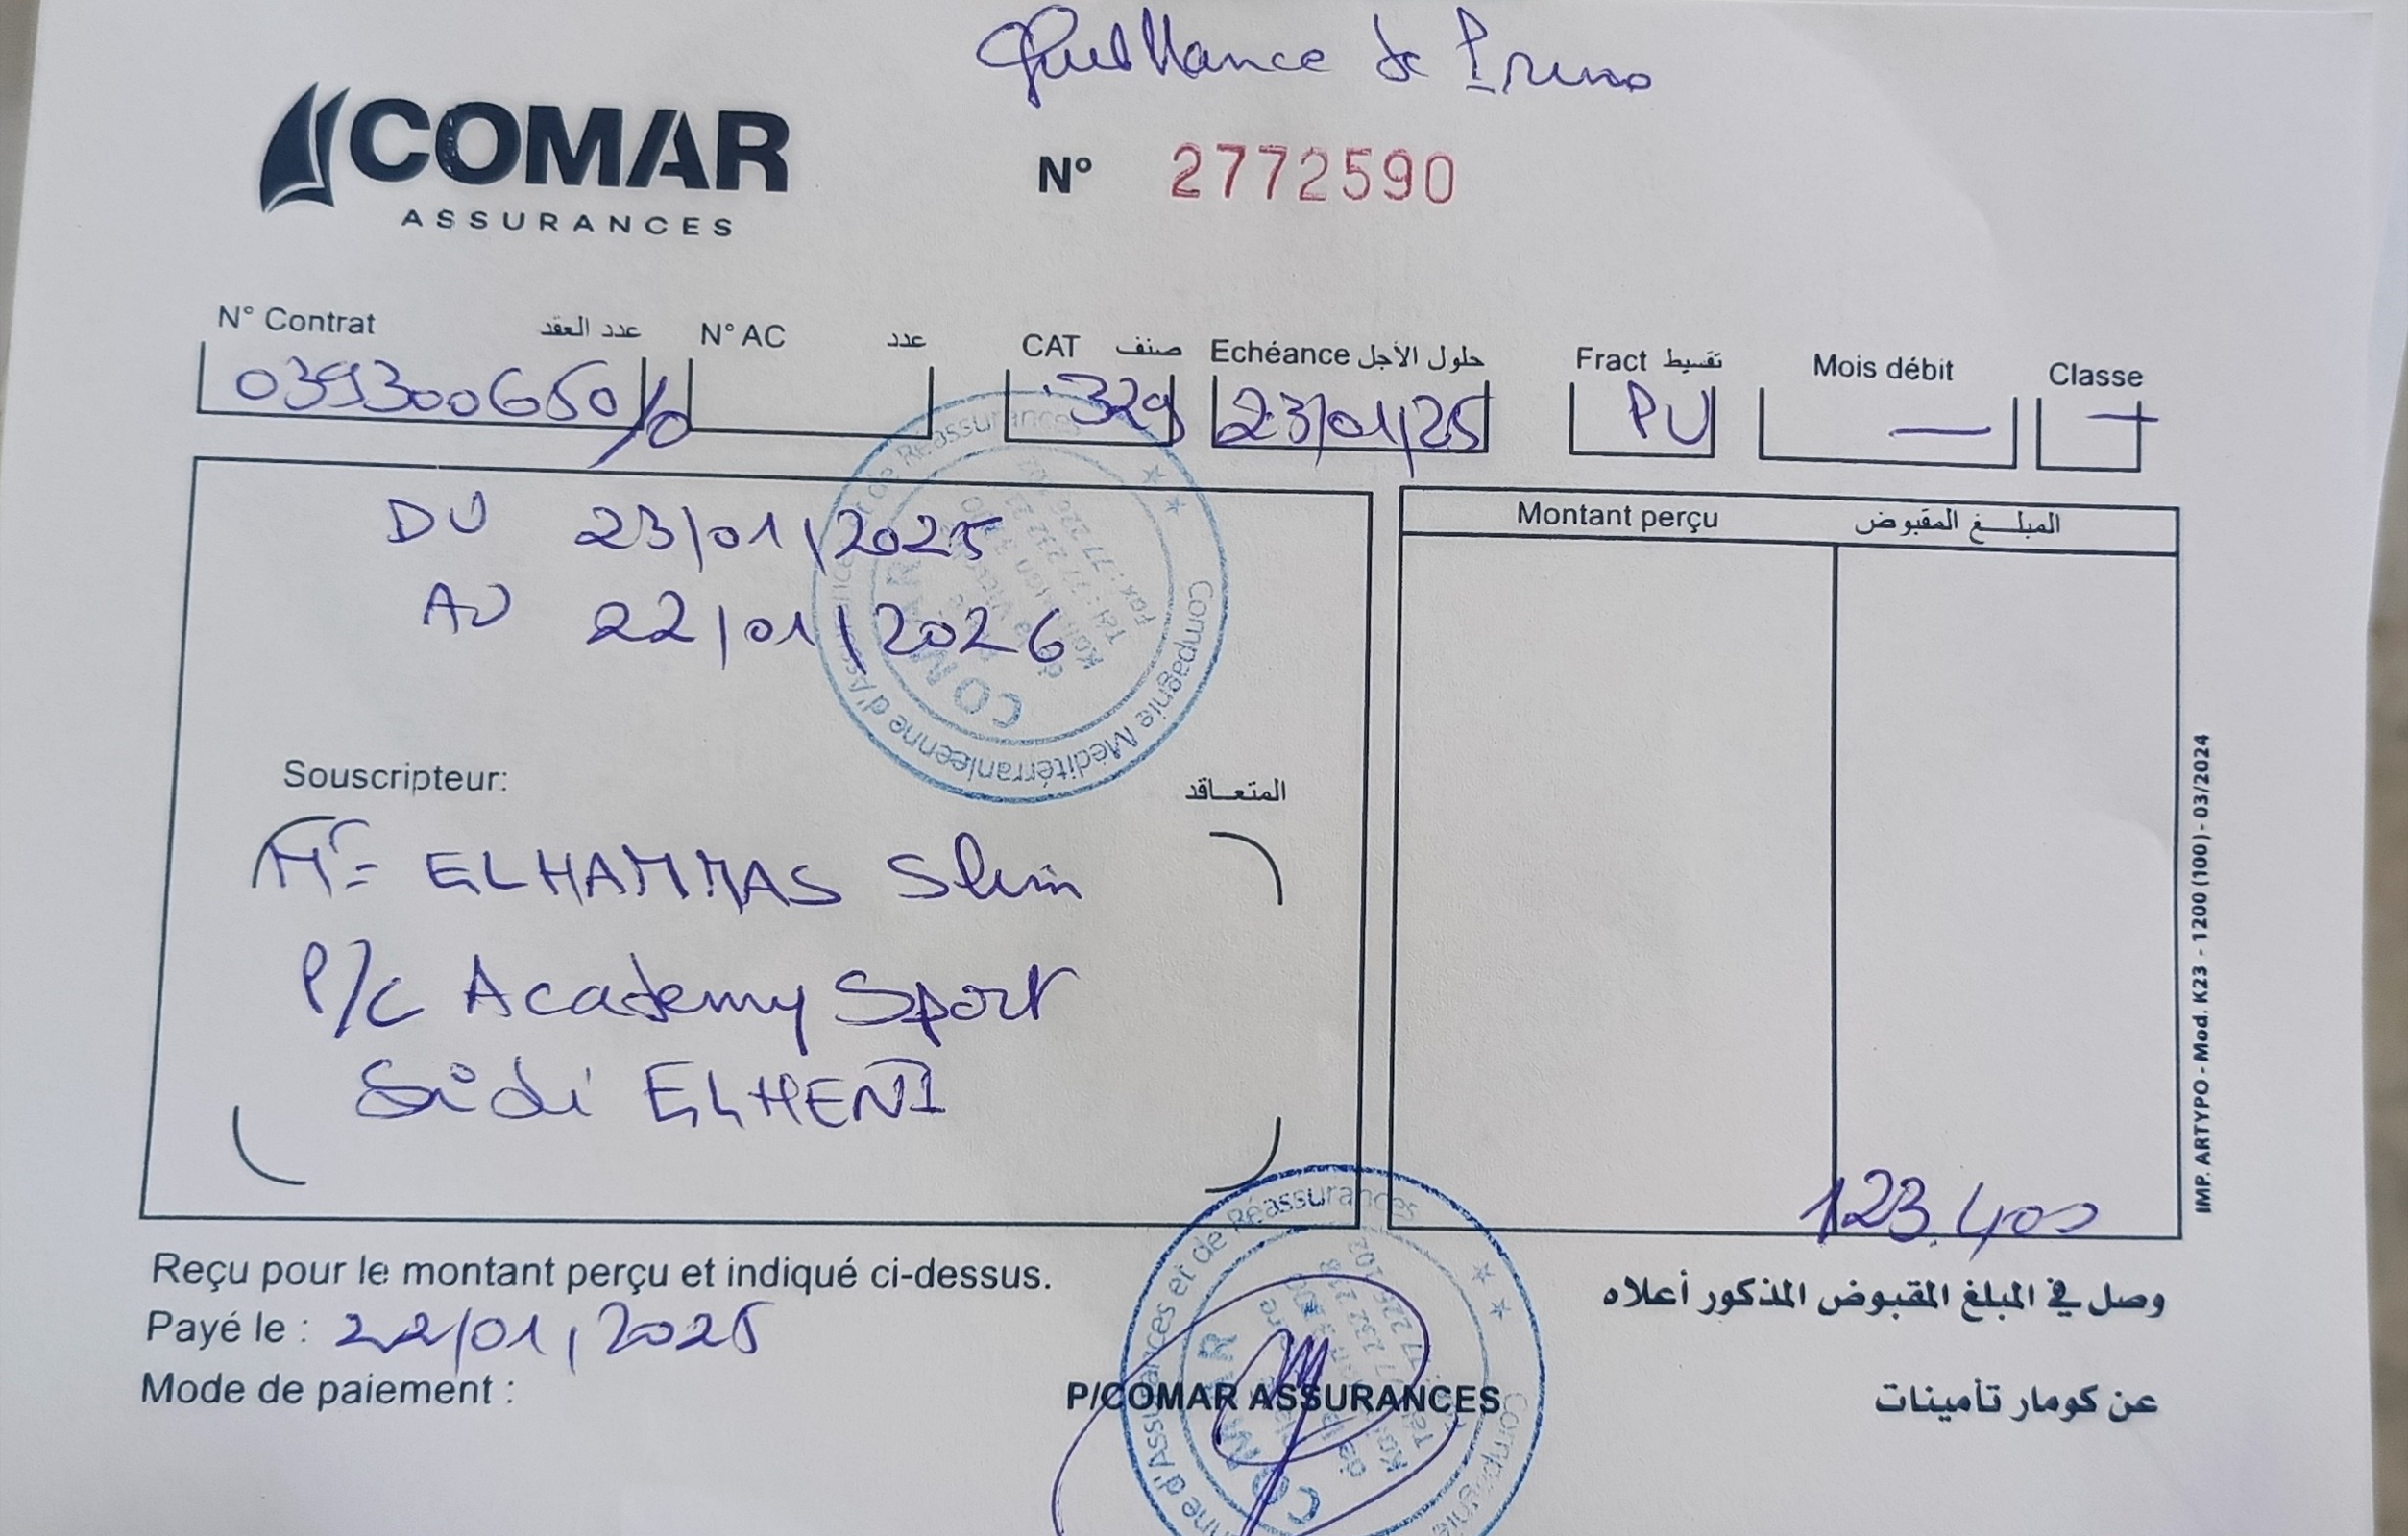 Quittance de Prime
COMAR
ASSURANCES
N° 2772590
N° Contrat عدد العقد N° AC عدد CAT صنف Echéance حلول الأجل Fract تقسيط Mois débit Classe
039300650/0 329 23/01/25 PU — —
DU 23/01/2025
AU 22/01/2026
Montant perçu المبلـــغ المقبوض
Souscripteur: المتعـاقد
Mr ELHAMMAS Slim
P/C Academy Sport
Sidi ELHENI
123.400
Reçu pour le montant perçu et indiqué ci-dessus.
وصل في المبلغ المقبوض المذكور أعلاه
Payé le : 22/01/2025
Mode de paiement :
P/COMAR ASSURANCES
عن كومار تأمينات
IMP. ARTYPO - Mod. K23 - 1200 (100) - 03/2024
Compagnie Méditérranéenne d'Assurances et de Réassurances
COMAR